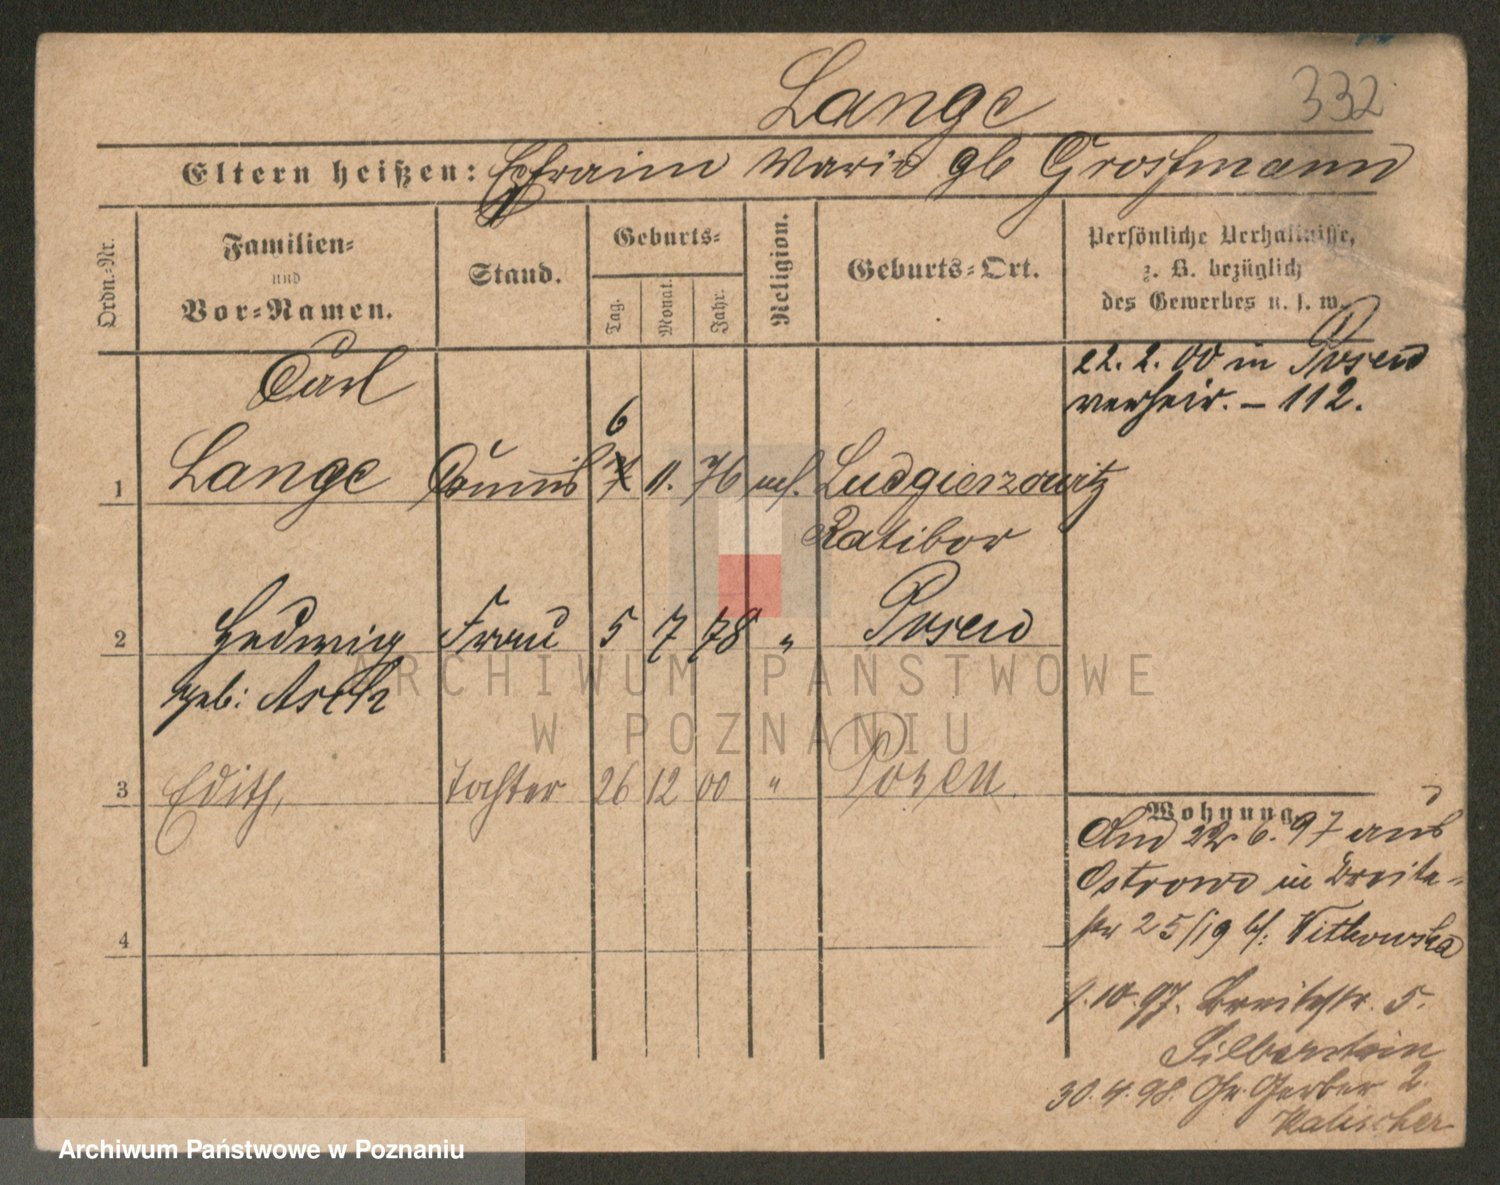 Lange
332
Eltern heißen: Efraim Marie gb Grossmann
Ordn.-Nr.
Familien-
und
Vor-Namen.
Stand.
Geburts-
Tag.
Monat.
Jahr.
Religion.
Geburts-Ort.
Persönliche Verhältnisse,
z. B. bezüglich
des Gewerbes u. s. w.
22. 2. 00 in Posen
verheir. – 112.
Carl
6
1 Lange 11. 76 Ludgierzowitz
Ratibor
2 Hedwig Frau 5 7 78 " Posen
geb: Asch
3 Edith, Tochter 26 12 00 " Posen.
4
Wohnung.
22 6. 97 aus
Ostrowo in Breite-
str 25/19 bf: Witkowska
1. 10. 97. Breitestr. 5.
Silberstein
30. 4. 98. Gr. Gerber 2.
Kalischer
ARCHIWUM PAŃSTWOWE
W POZNANIU
Archiwum Państwowe w Poznaniu